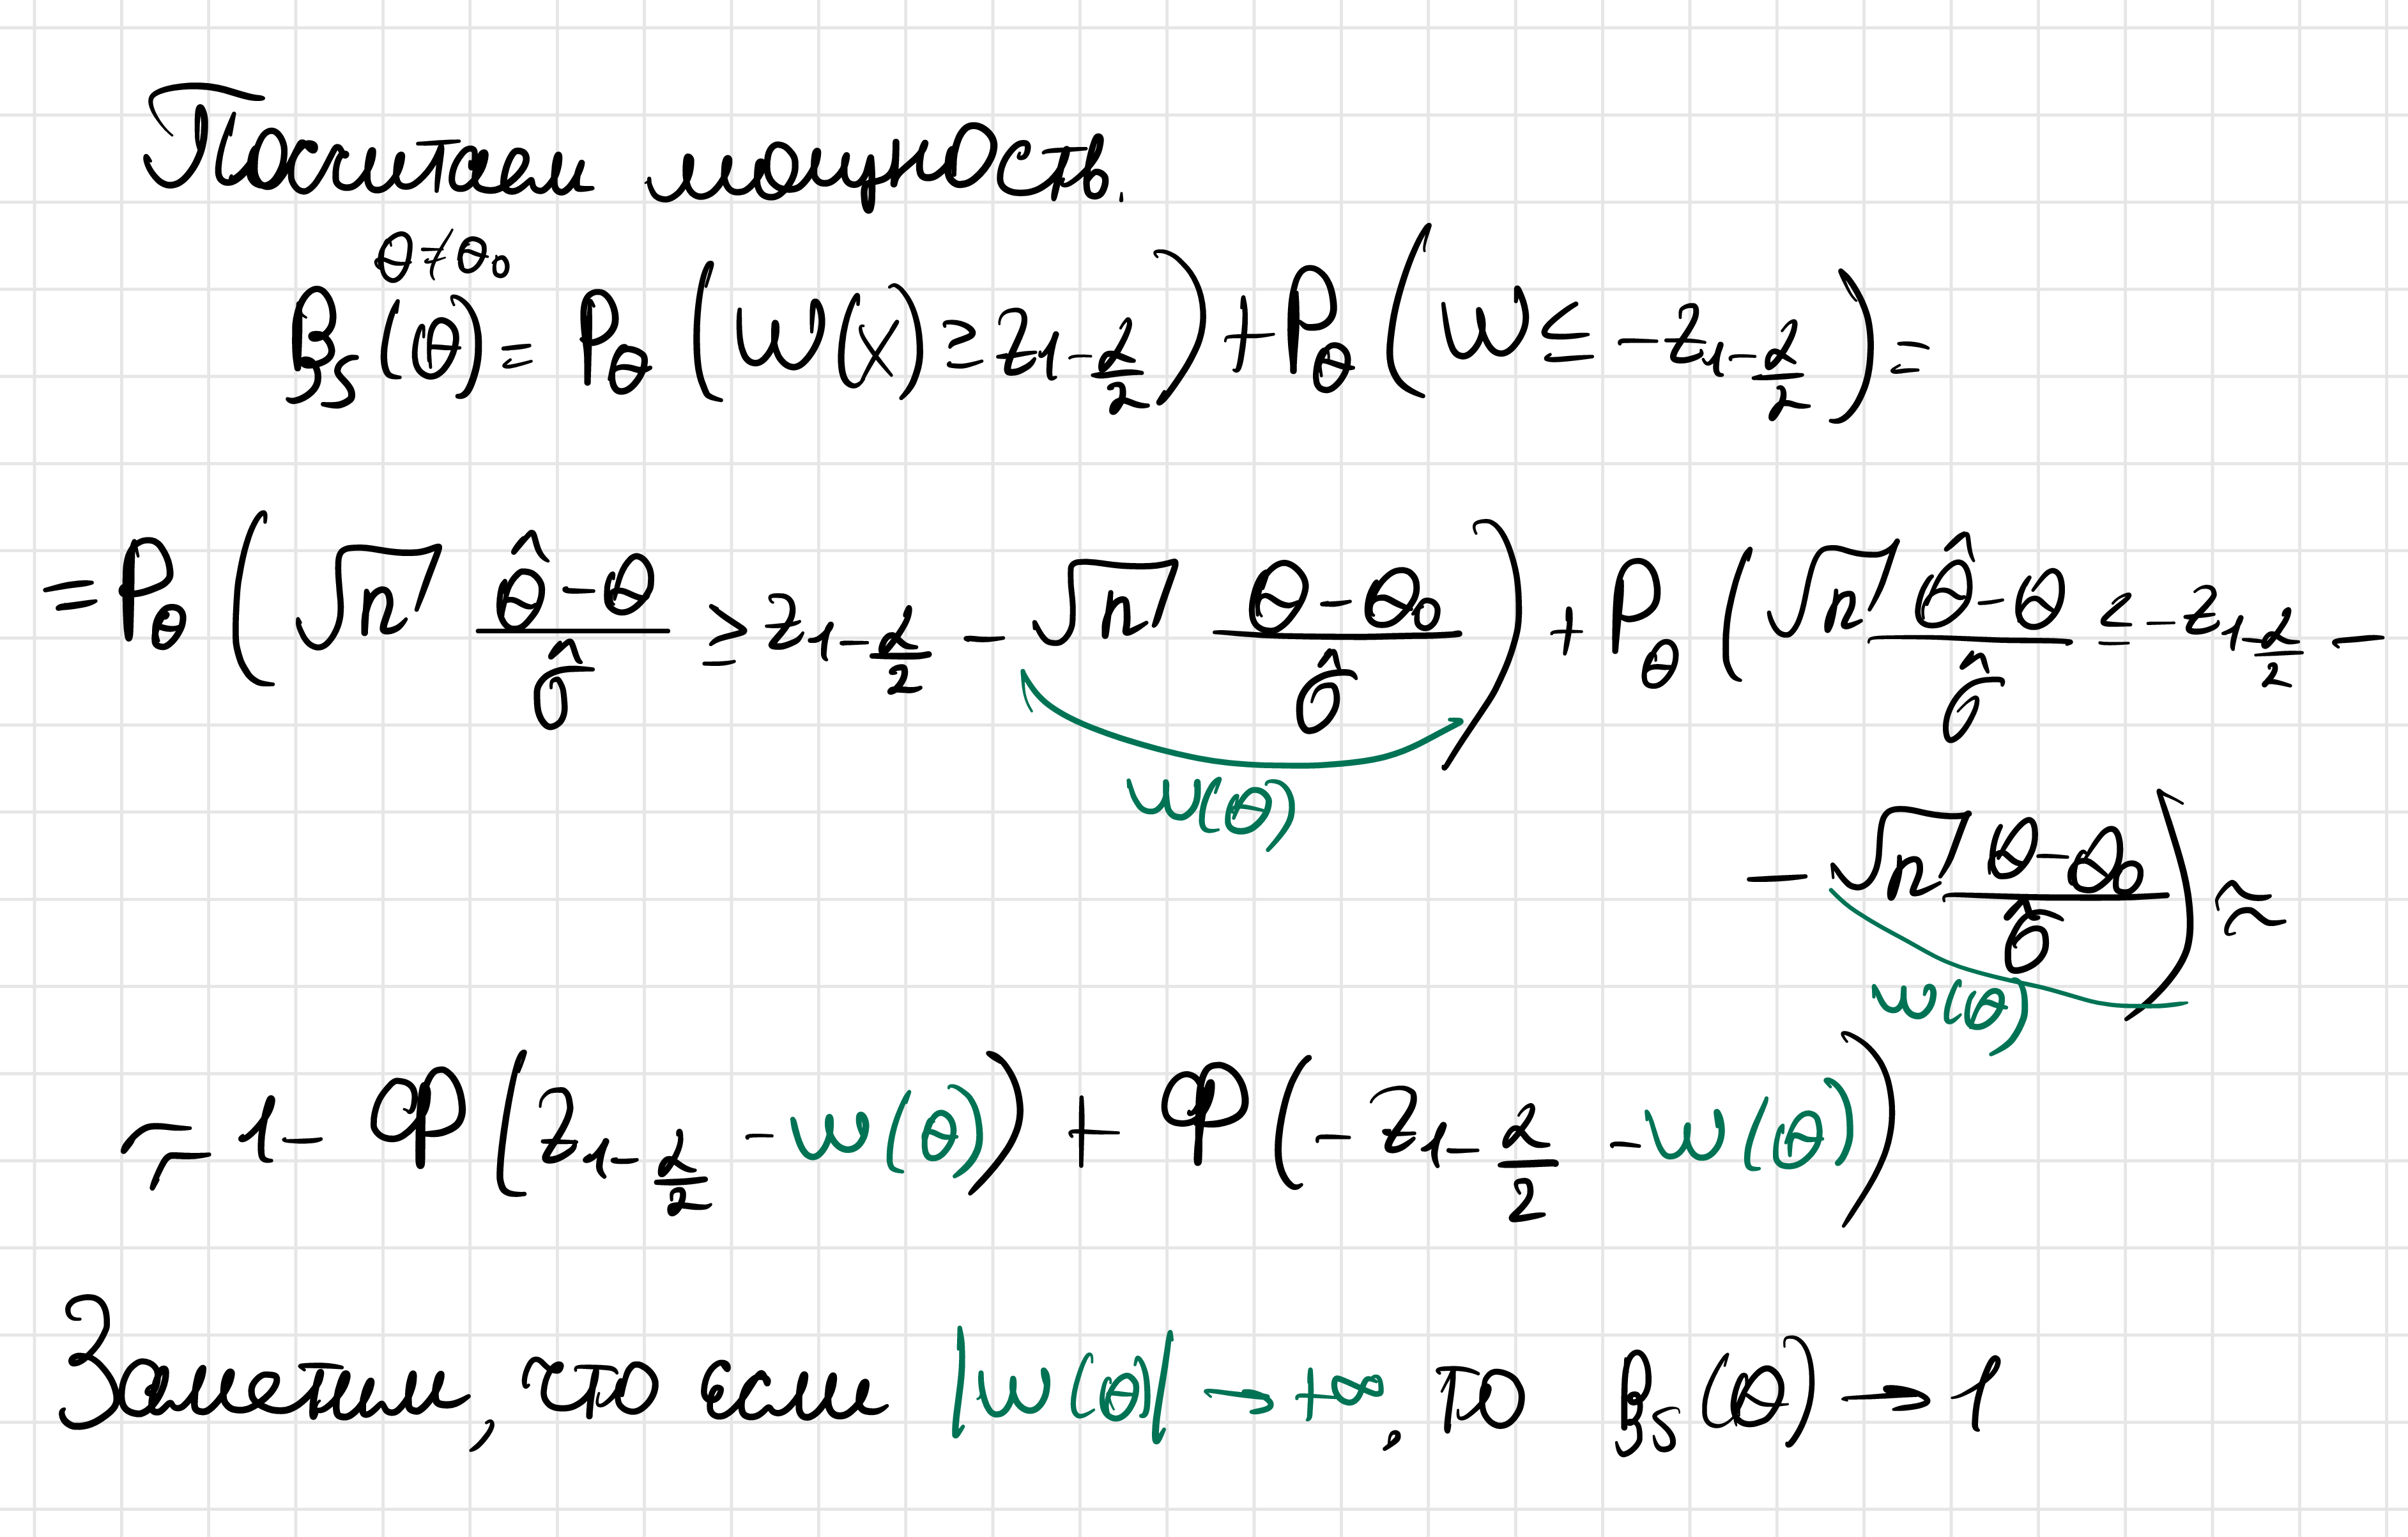 Посчитаем мощность.
θ ≠ θ₀
β_S (θ) = P_θ (W(X) ≥ z_{1-α/2}) + P_θ (W ≤ -z_{1-α/2}) =
= P_θ (√n (θ̂-θ)/σ̂ ≥ z_{1-α/2} - √n (θ-θ₀)/σ̂) + P_θ (√n (θ̂-θ)/σ̂ ≤ -z_{1-α/2} -
w(θ)
- √n (θ-θ₀)/σ̂) ≈
w(θ)
≈ 1 - Φ (z_{1-α/2} - w(θ)) + Φ (-z_{1-α/2} - w(θ))
Заметим, что если |w(θ)| → +∞, то β_S (θ) → 1